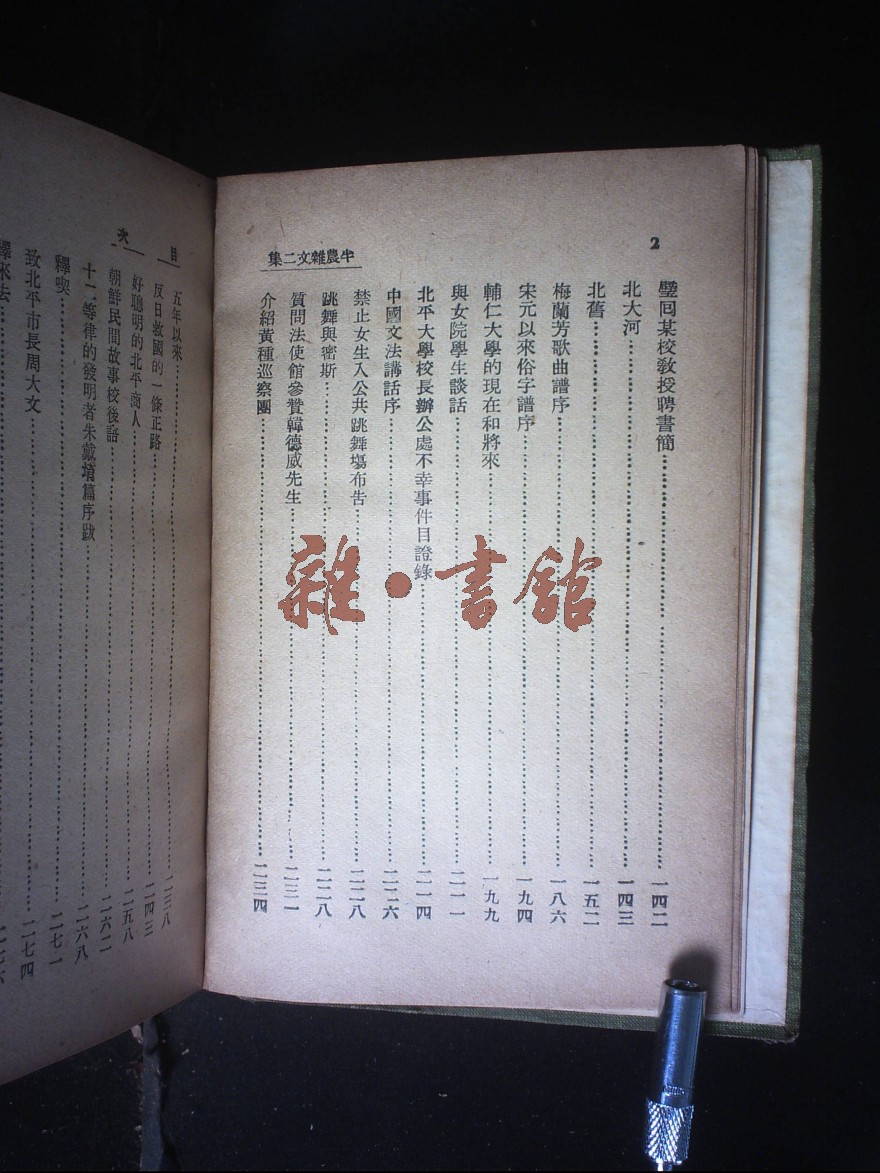 2
半農雜文二集
璧囘某校敎授聘書簡……一四二
北大河……一四三
北舊……一五二
梅蘭芳歌曲譜序……一八六
宋元以來俗字譜序……一九四
輔仁大學的現在和將來……一九九
與女院學生談話……二一一
北平大學校長辦公處不幸事件目證錄……二一四
中國文法講話序……二二六
禁止女生入公共跳舞塲布吿……二二八
跳舞與密斯……二二八
質問法使館參贊韓德威先生……二三一
介紹黃種巡察團……二三四
目次
五年以來……二三八
反日救國的一條正路……二四三
好聰明的北平商人……二五八
朝鮮民間故事校後語……二六二
十二等律的發明者朱載堉篇序跋……二六八
釋喫……二七一
致北平市長周大文……二七四
釋來去……二七六
雜·書館